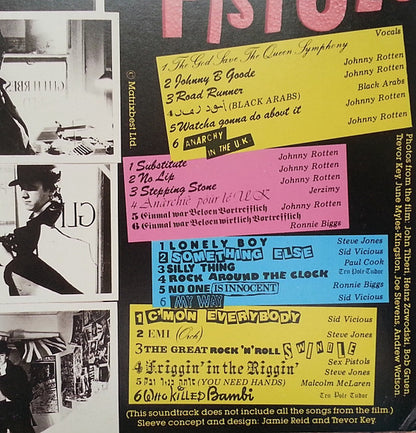 PISTOLS
Vocals
1 The God Save The Queen Symphony
2 Johnny B Goode Johnny Rotten
3 Road Runner Johnny Rotten
4 (BLACK ARABS) Black Arabs
5 Watcha gonna do about it Johnny Rotten
6 ANARCHY IN THE U.K. Johnny Rotten
1 Substitute Johnny Rotten
2 No Lip Johnny Rotten
3 Stepping Stone Johnny Rotten
4 Anarchie pour le UK Jerzimy
5 Einmal war Belsen Vortrefflich
6 Einmal war Belsen wirklich Vortrefflich Ronnie Biggs
1 LONELY BOY Steve Jones
2 SOMETHING ELSE Sid Vicious
3 SILLY THING Paul Cook
4 ROCK AROUND THE CLOCK Ten Pole Tudor
5 NO ONE IS INNOCENT Ronnie Biggs
6 MY WAY Sid Vicious
1 C'MON EVERYBODY Sid Vicious
2 EMI (Orch)
3 THE GREAT ROCK 'N' ROLL SWINDLE Steve Jones
4 Friggin' in the Riggin' Sex Pistols
Steve Jones
5 (YOU NEED HANDS) Malcolm McLaren
6 WHO KILLED Bambi Ten Pole Tudor
(This soundtrack does not include all the songs from the film.)
Sleeve concept and design: Jamie Reid and Trevor Key.
© Matrixbest Ltd.
Photos from the film: John Tiberi, Heinz Zawadski, Bob Gruen,
Trevor Key, June Myles-Kingston, Joe Stevens, Andrew Watson.